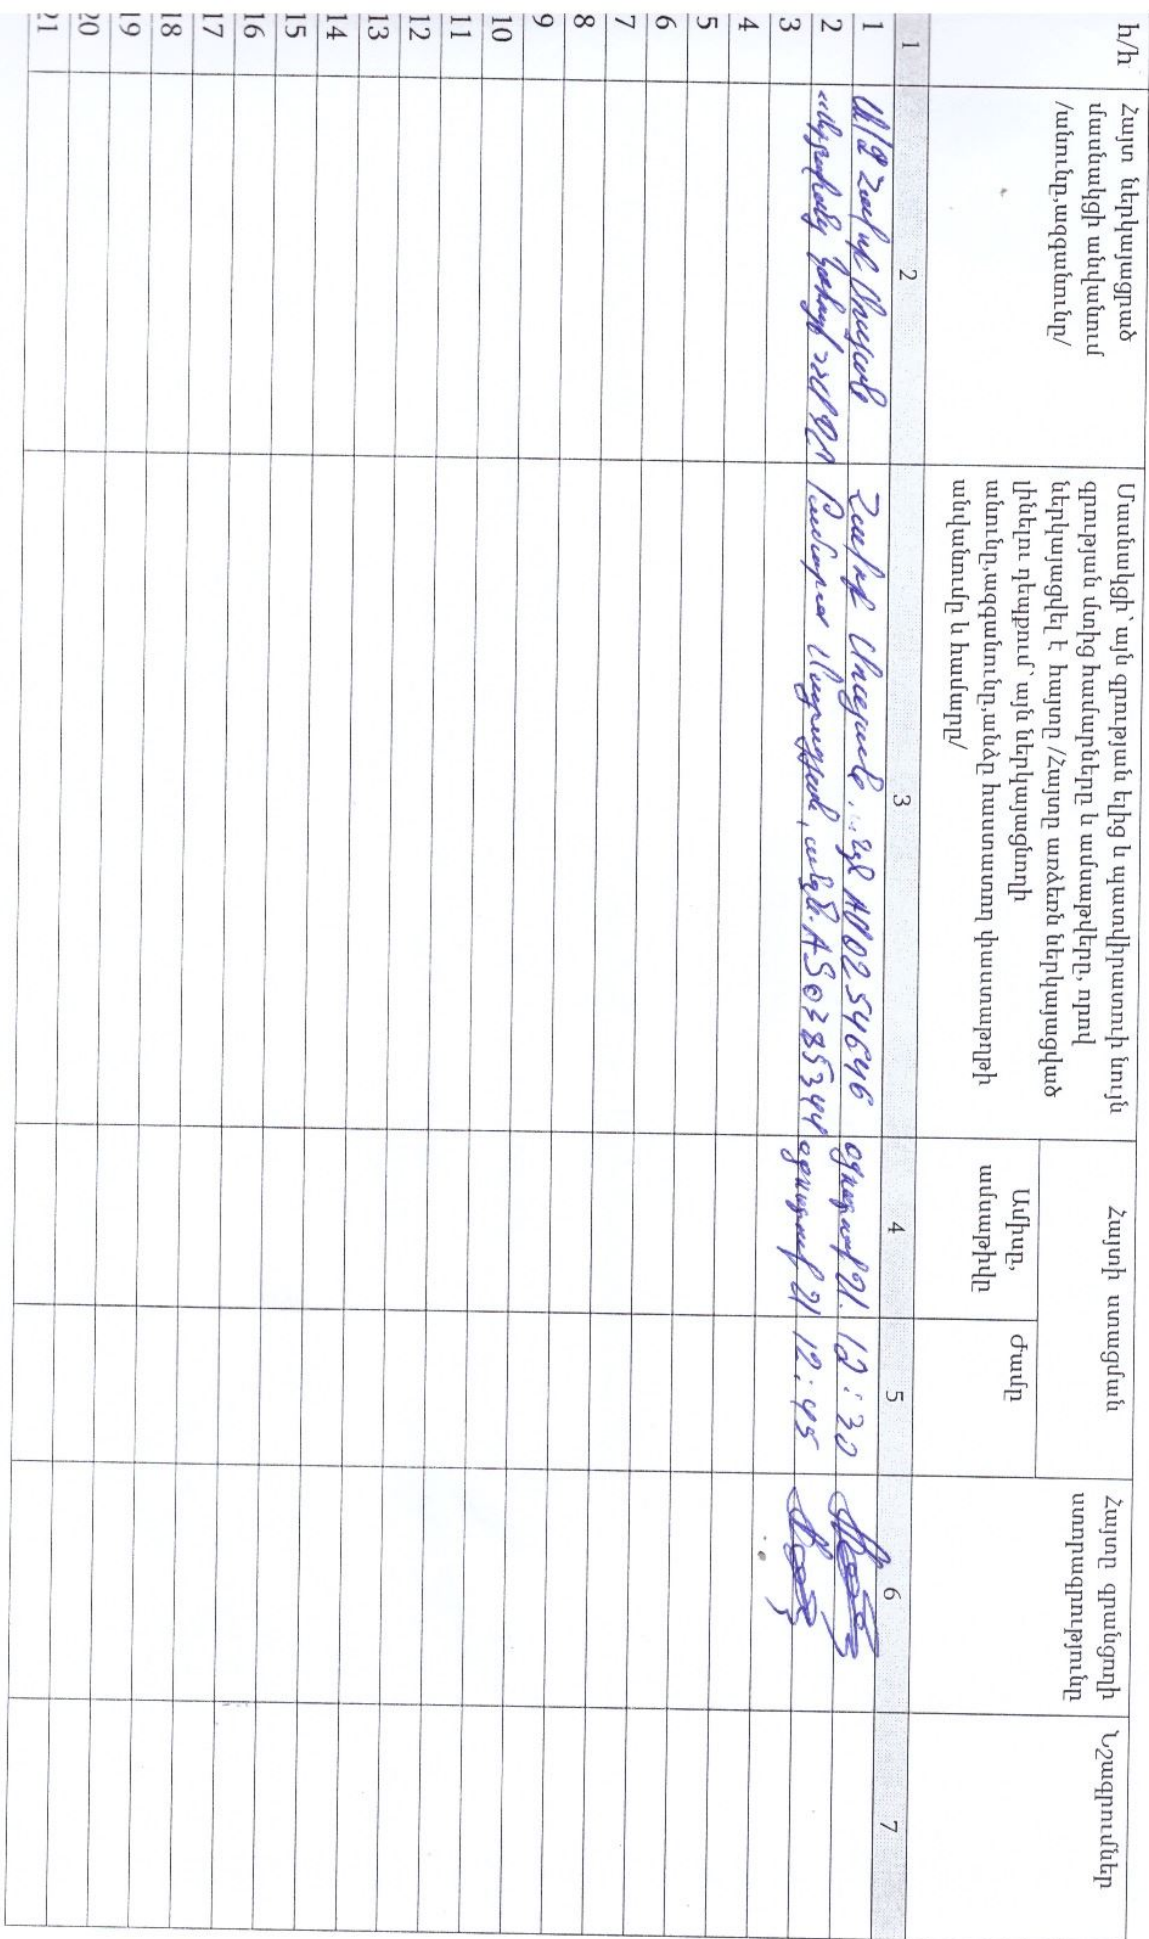 հ/հ
Հայտ ներկայացրած
մասնակցի անվանում
/անունը,ազգանունը/
Մասնակցի՝ այն գրության ելից և պատվիրատուի նույն
գրության մտից համարները և ամսաթվերը, որով
ներկայացվել է հայտը /Հայտը առձեռն ներկայացված
լինելու դեպքում՝ այն ներկայացնողի
անունը,ազգանունը,անձը հաստատող փաստաթղթի
անվանումը և համարը/
Հայտի ստացման
Ամիսը,
ամսաթիվը
Ժամը
Հայտը գրանցողի
ստորագրությունը
Նշագրումներ
1 2 3 4 5 6 7
1 Ա/Ձ Մուսյան Մուսյան AP0254646 օգոստոսի 21. 12:30
2 AS0385344 օգոստոսի 21 12:45
3
4
5
6
7
8
9
10
11
12
13
14
15
16
17
18
19
20
21